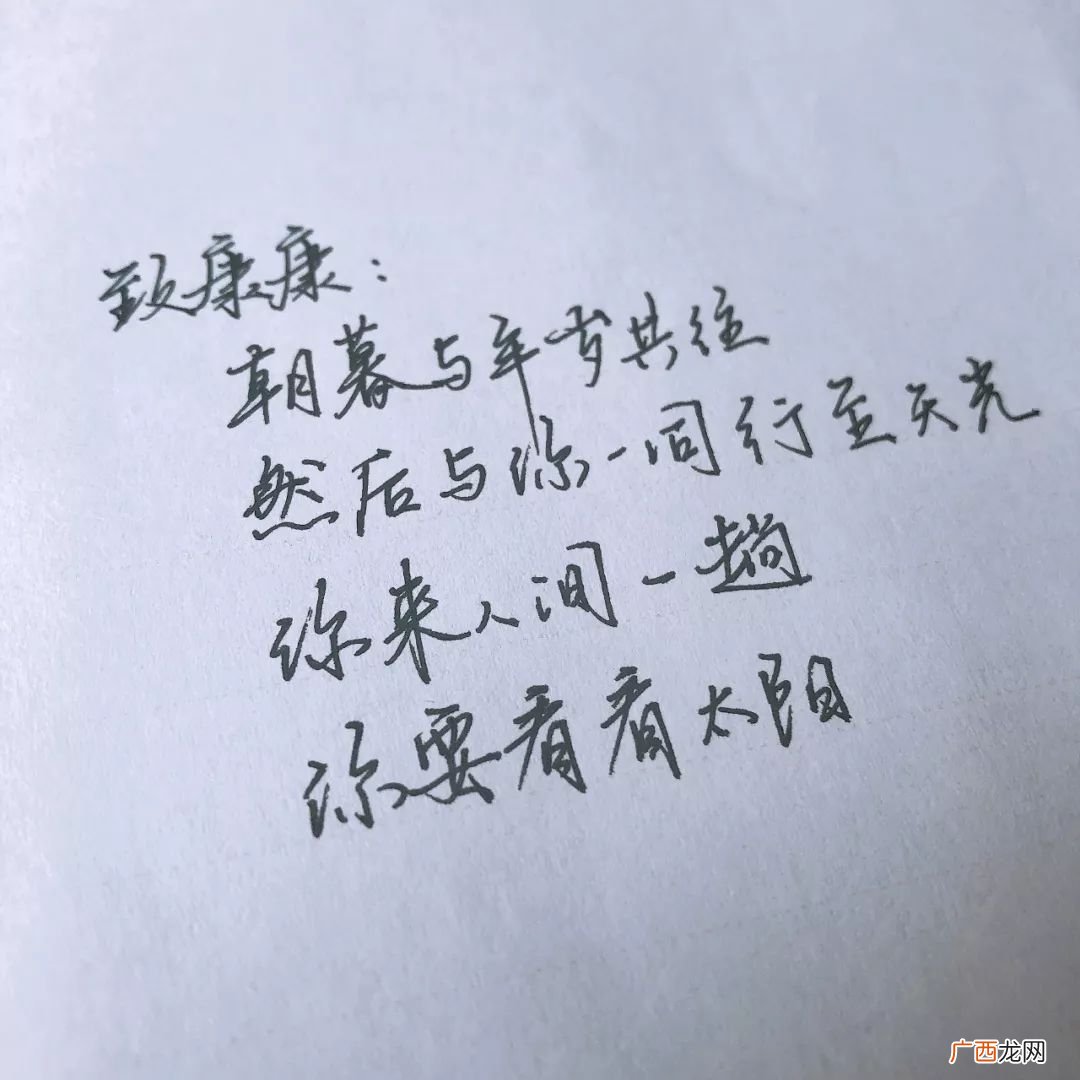 致康康：
朝暮与年岁共往
然后与你一同行至天光
你来人间一趟
你要看看太阳
广西龙网